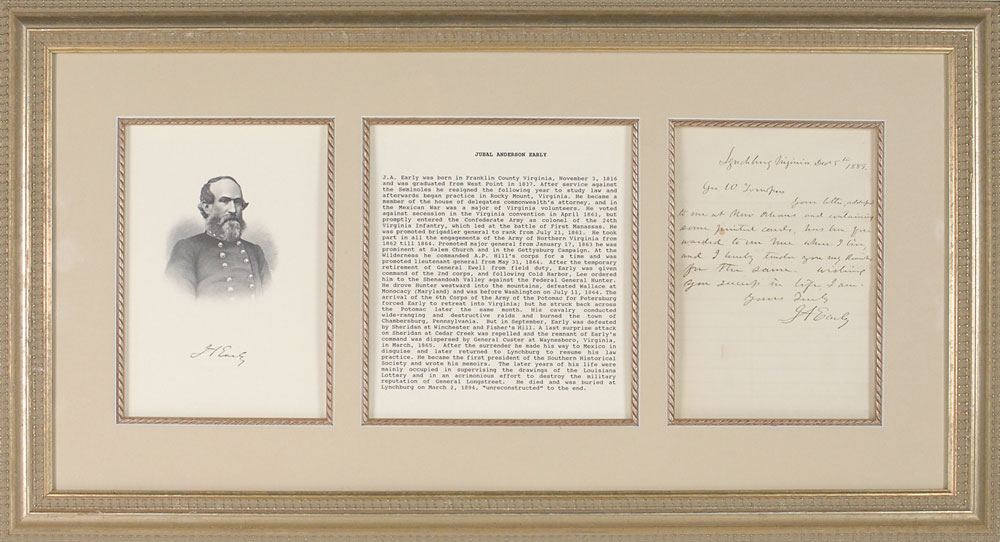 J A Early
JUBAL ANDERSON EARLY
J.A. Early was born in Franklin County Virginia, November 3, 1816
and was graduated from West Point in 1837. After service against
the Seminoles he resigned the following year to study law and
afterwards began practice in Rocky Mount, Virginia. He became a
member of the house of delegates commonwealth's attorney, and in
the Mexican War was a major of Virginia volunteers. He voted
against secession in the Virginia convention in April 1861, but
promptly entered the Confederate Army as colonel of the 24th
Virginia Infantry, which led at the battle of first Manassas. He
was promoted brigadier general to rank from July 21, 1861. He took
part in all the engagements of the Army of Northern Virginia from
1862 till 1864. Promoted major general from January 17, 1863 he was
prominent at Salem Church and in the Gettysburg Campaign. At the
Wilderness he commanded A.P. Hill's corps for a time and was
promoted lieutenant general from May 31, 1864. After the temporary
retirement of General Ewell from field duty, Early was given
command of the 2nd corps, and following Cold Harbor, Lee ordered
him to the Shenandoah Valley against the Federal General Hunter.
He drove Hunter westward into the mountains, defeated Wallace at
Monocacy (Maryland) and was before Washington on July 11, 1864. The
arrival of the 6th Corps of the Army of the Potomac for Petersburg
forced Early to retreat into Virginia; but he struck back across
the Potomac later the same month. His cavalry conducted
wide-ranging and destructive raids and burned the town of
Chambersburg, Pennsylvania. But in September, Early was defeated
by Sheridan at Winchester and Fisher's Hill. A last surprise attack
on Sheridan at Cedar Creek was repelled and the remnant of Early's
command was dispersed by General Custer at Waynesboro, Virginia,
in March, 1865. After the surrender he made his way to Mexico in
disguise and later returned to Lynchburg to resume his law
practice. He became the first president of the Southern Historical
Society and wrote his memoirs. The later years of his life were
mainly occupied in supervising the drawings of the Louisiana
Lottery and in an acrimonious effort to destroy the military
reputation of General Longstreet. He died and was buried at
Lynchburg on March 2, 1894, "unreconstructed" to the end.
Lynchburg Virginia Dec 5th
Geo W
Your letter
to me at New Orleans and containing
some printed cards, has been for
warded to me here where I live,
and I hereby tender you my thanks
for the same. Wishing
you success in life I am
Yours Truly
J A Early